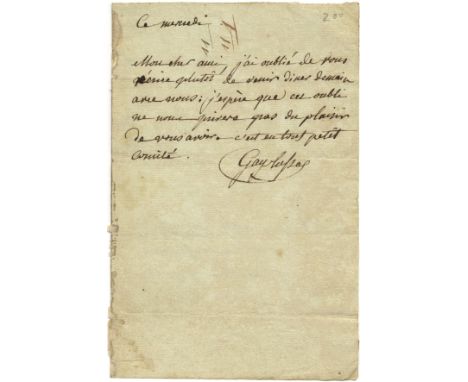 Ce mercredi
Mon cher ami, j'ai oublié de vous
plutôt de venir diner demain
avec nous; j'espère que cet oubli
ne nous privera pas du plaisir
de vous avoir. c'est en tout petit
comité.
Gay Lussac